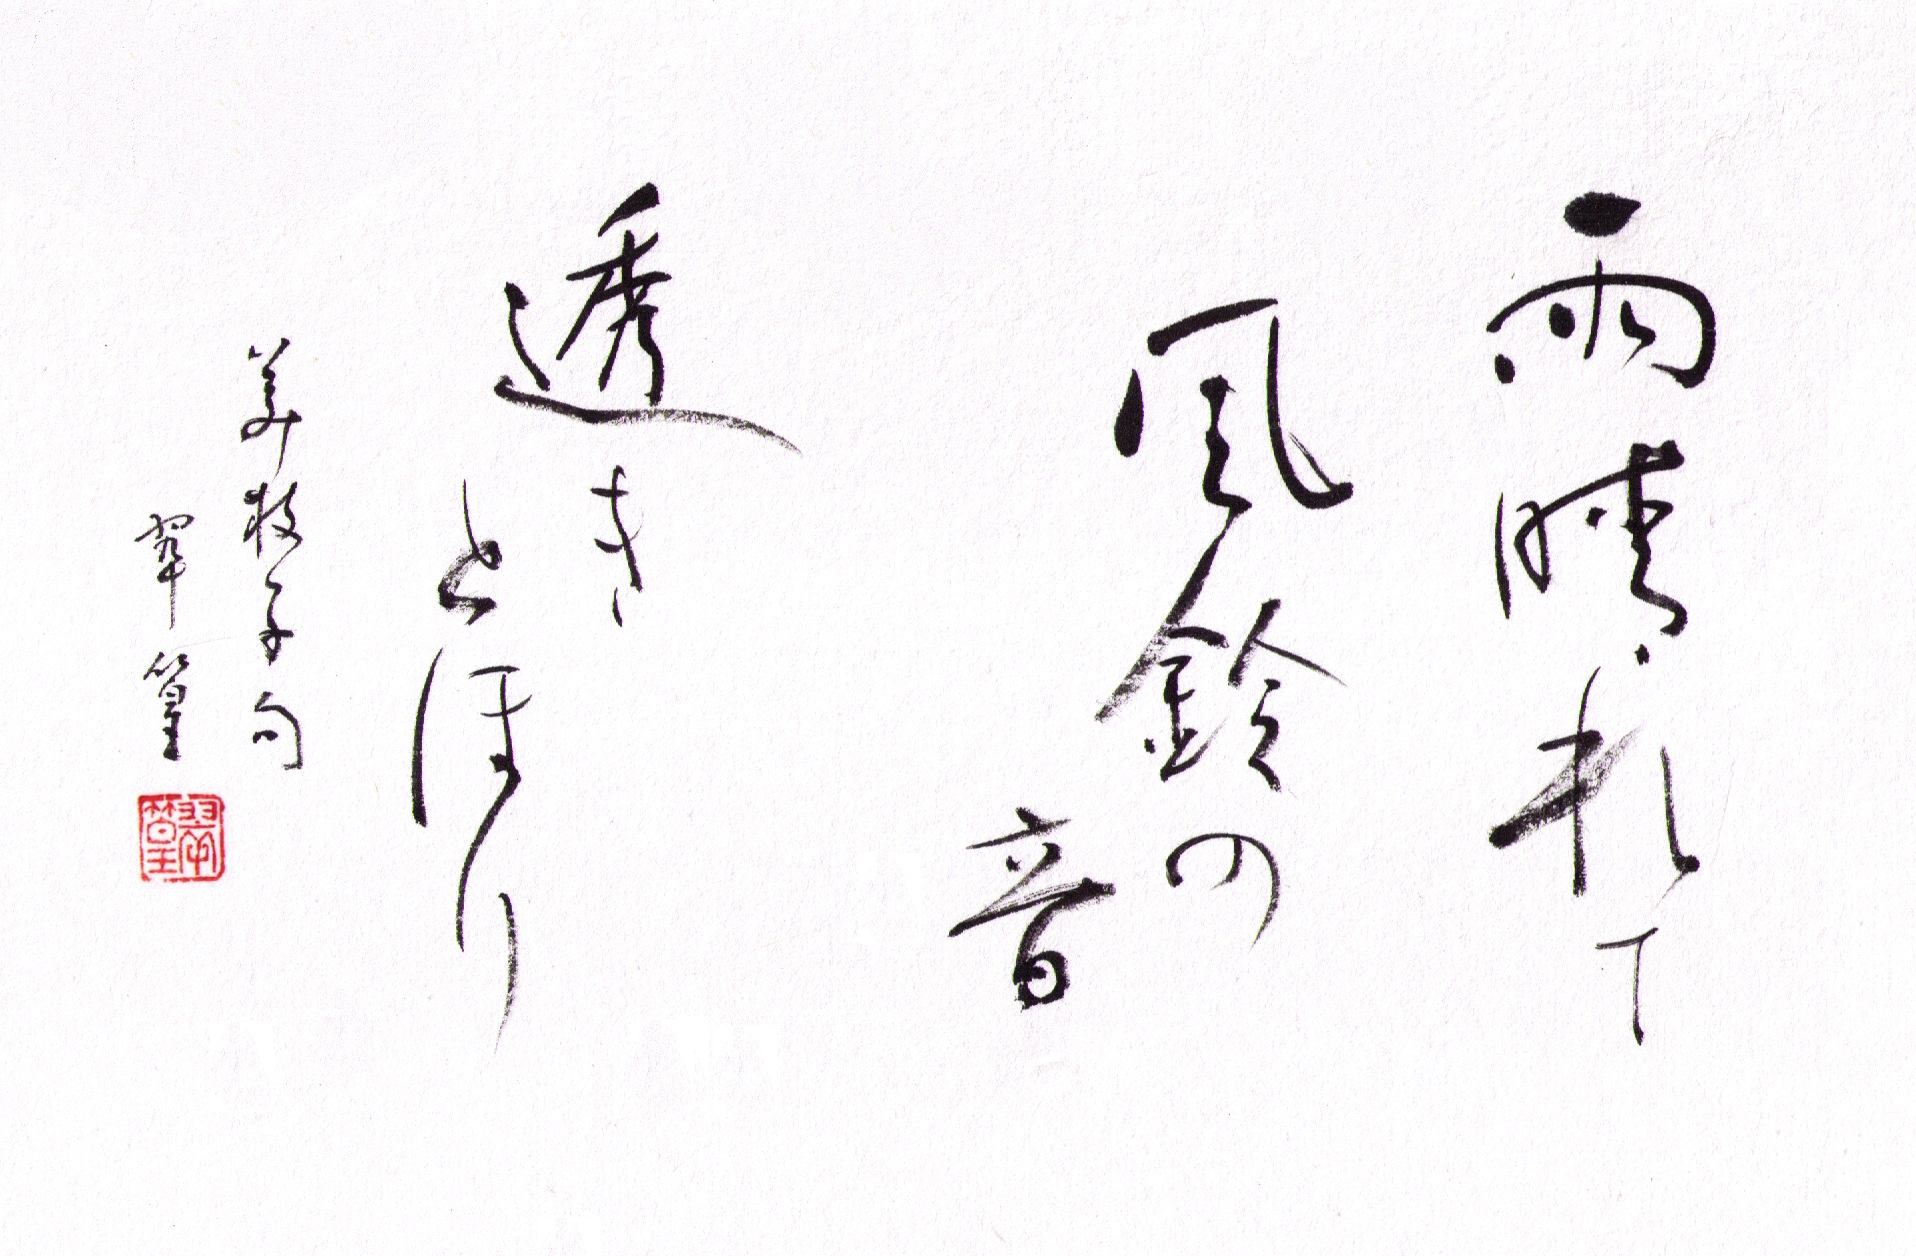 雨晴れて
風鈴の
音
透き
とほり
美枝子句
翠篁
翠篁